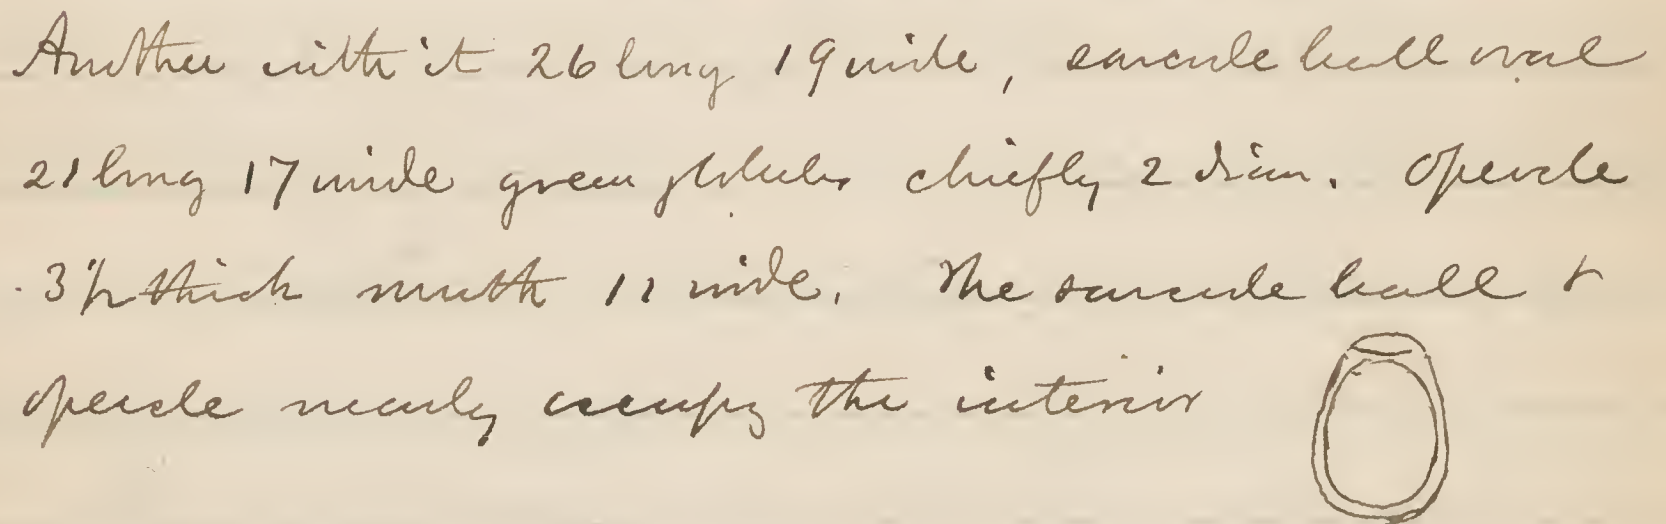 Another with it 26 long 19 wide, sarcode ball oval
21 long 17 wide green globules chiefly 2 diam. Opercle
3½ thick mouth 11 wide. The sarcode ball &
opercle nearly occupy the interior